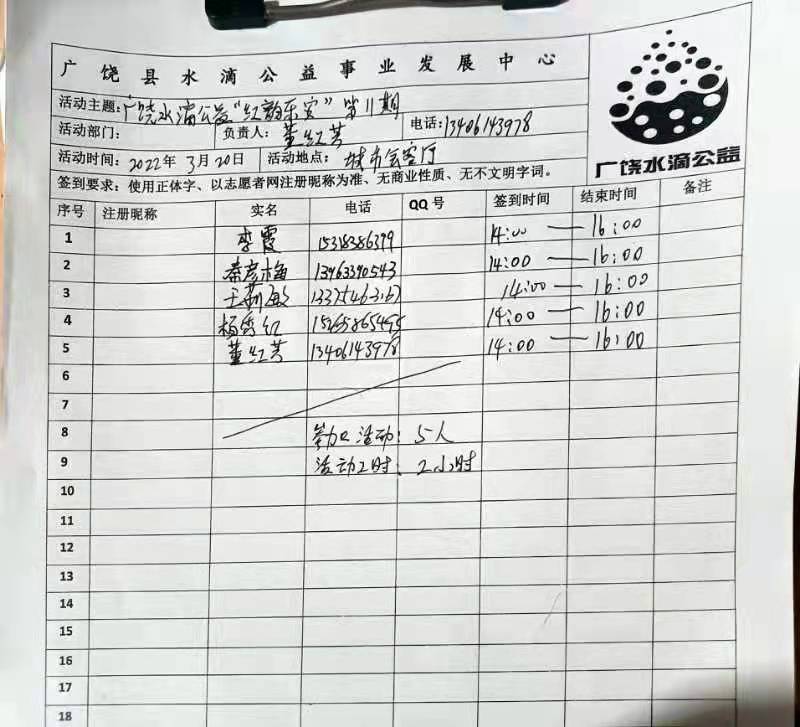 广饶县水滴公益事业发展中心
活动主题：广饶水滴公益"红韵乐宣"第11期
活动部门： 负责人：董红芸 电话：13406143978
活动时间：2022年3月20日 活动地点：城市会客厅
签到要求：使用正体字、以志愿者网注册昵称为准、无商业性质、无不文明字词。
广饶水滴公益
序号 注册昵称 实名 电话 QQ号 签到时间 结束时间 备注
1 李霞 15318386399 14:00 — 16:00
2 秦彦梅 13963390543 14:00 — 16:00
3 王莉敏 14:00 — 16:00
4 杨秀红 15265865495 14:00 — 16:00
5 董红芸 13406143978 14:00 — 16:00
6
7
8 参加活动：5人
9 活动工时：2小时
10
11
12
13
14
15
16
17
18